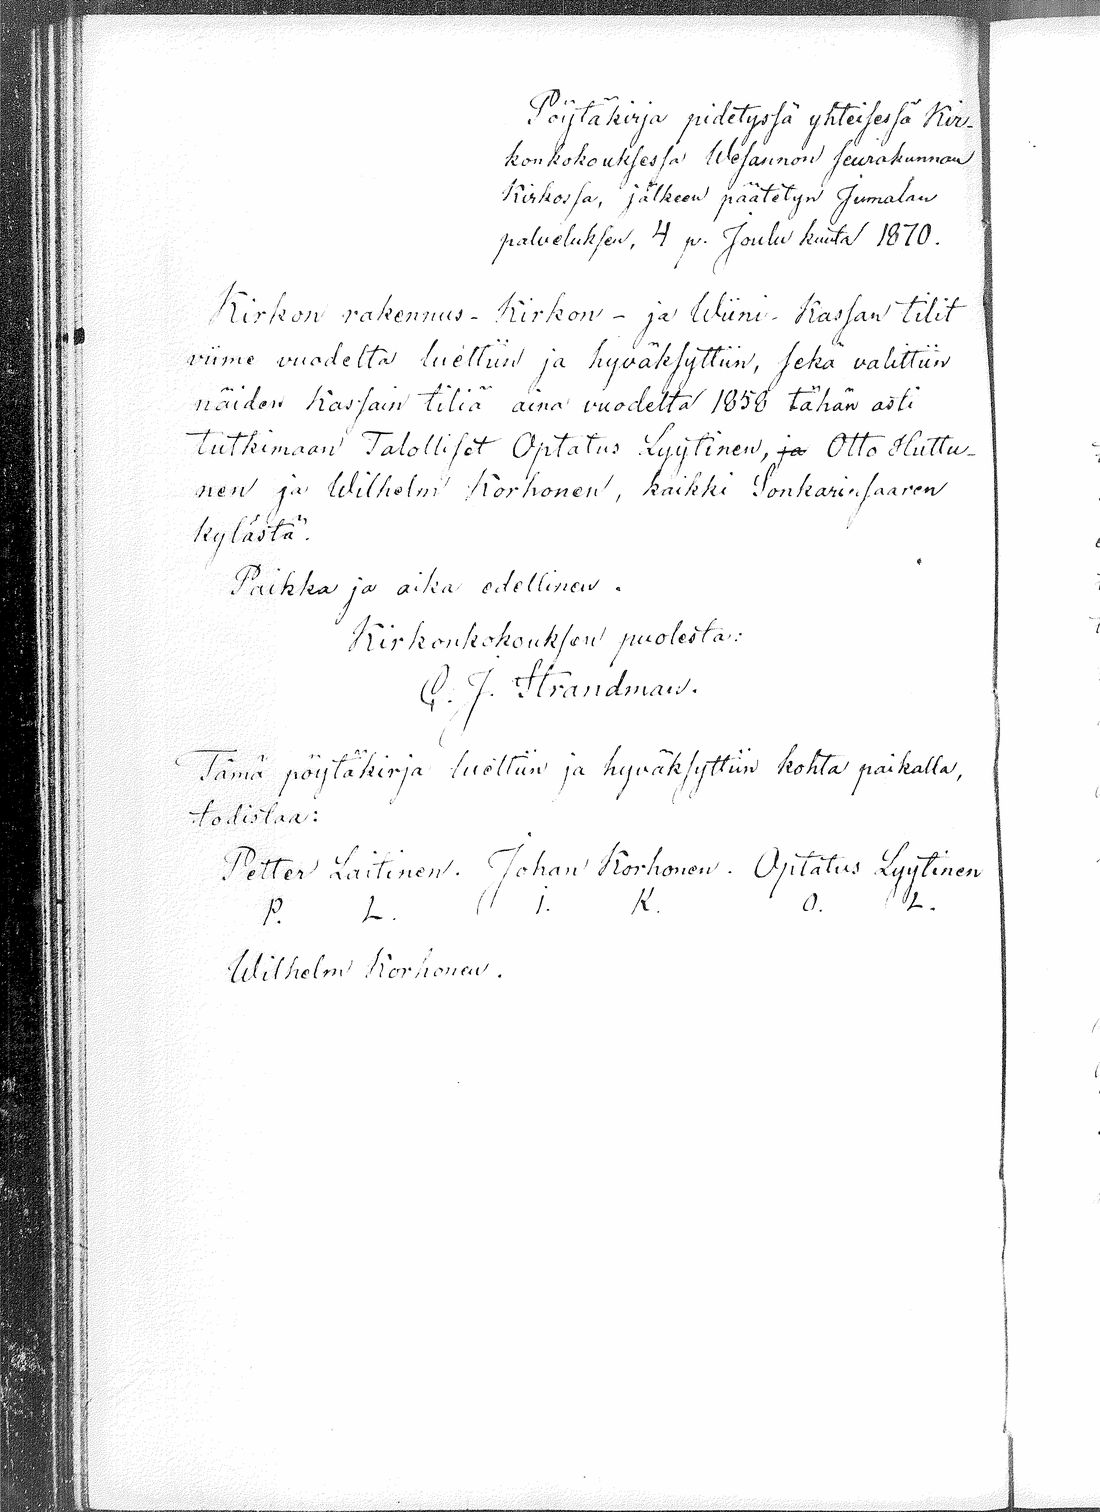 Pöytäkirja pidetyssä yhteisessä Kir-
konkokouksessa Wesannon seurakunnan
Kirkossa, jälkeen päätetyn Jumalan
palveluksen, 4 p. Joulu kuuta 1870.
Kirkon rakennus- Kirkon- ja Wiini- Kassan tilit
viime vuodelta luettiin ja hyväksyttiin, sekä valittiin
näiden Kassain tiliä aina vuodelta 1858 tähän asti
tutkimaan Talolliset Optatus Lyytinen, ja Otto Huttu-
nen ja Wilhelm Korhonen, kaikki Sonkarinsaaren
kylästä.
Paikka ja aika edellinen.
Kirkonkokouksen puolesta:
C. J. Strandman.
Tämä pöytäkirja luettiin ja hyväksyttiin kohta paikalla,
todistaa:
Petter Laitinen. Johan Korhonen. Optatus Lyytinen
P. L. J. K. O. L.
Wilhelm Korhonen.